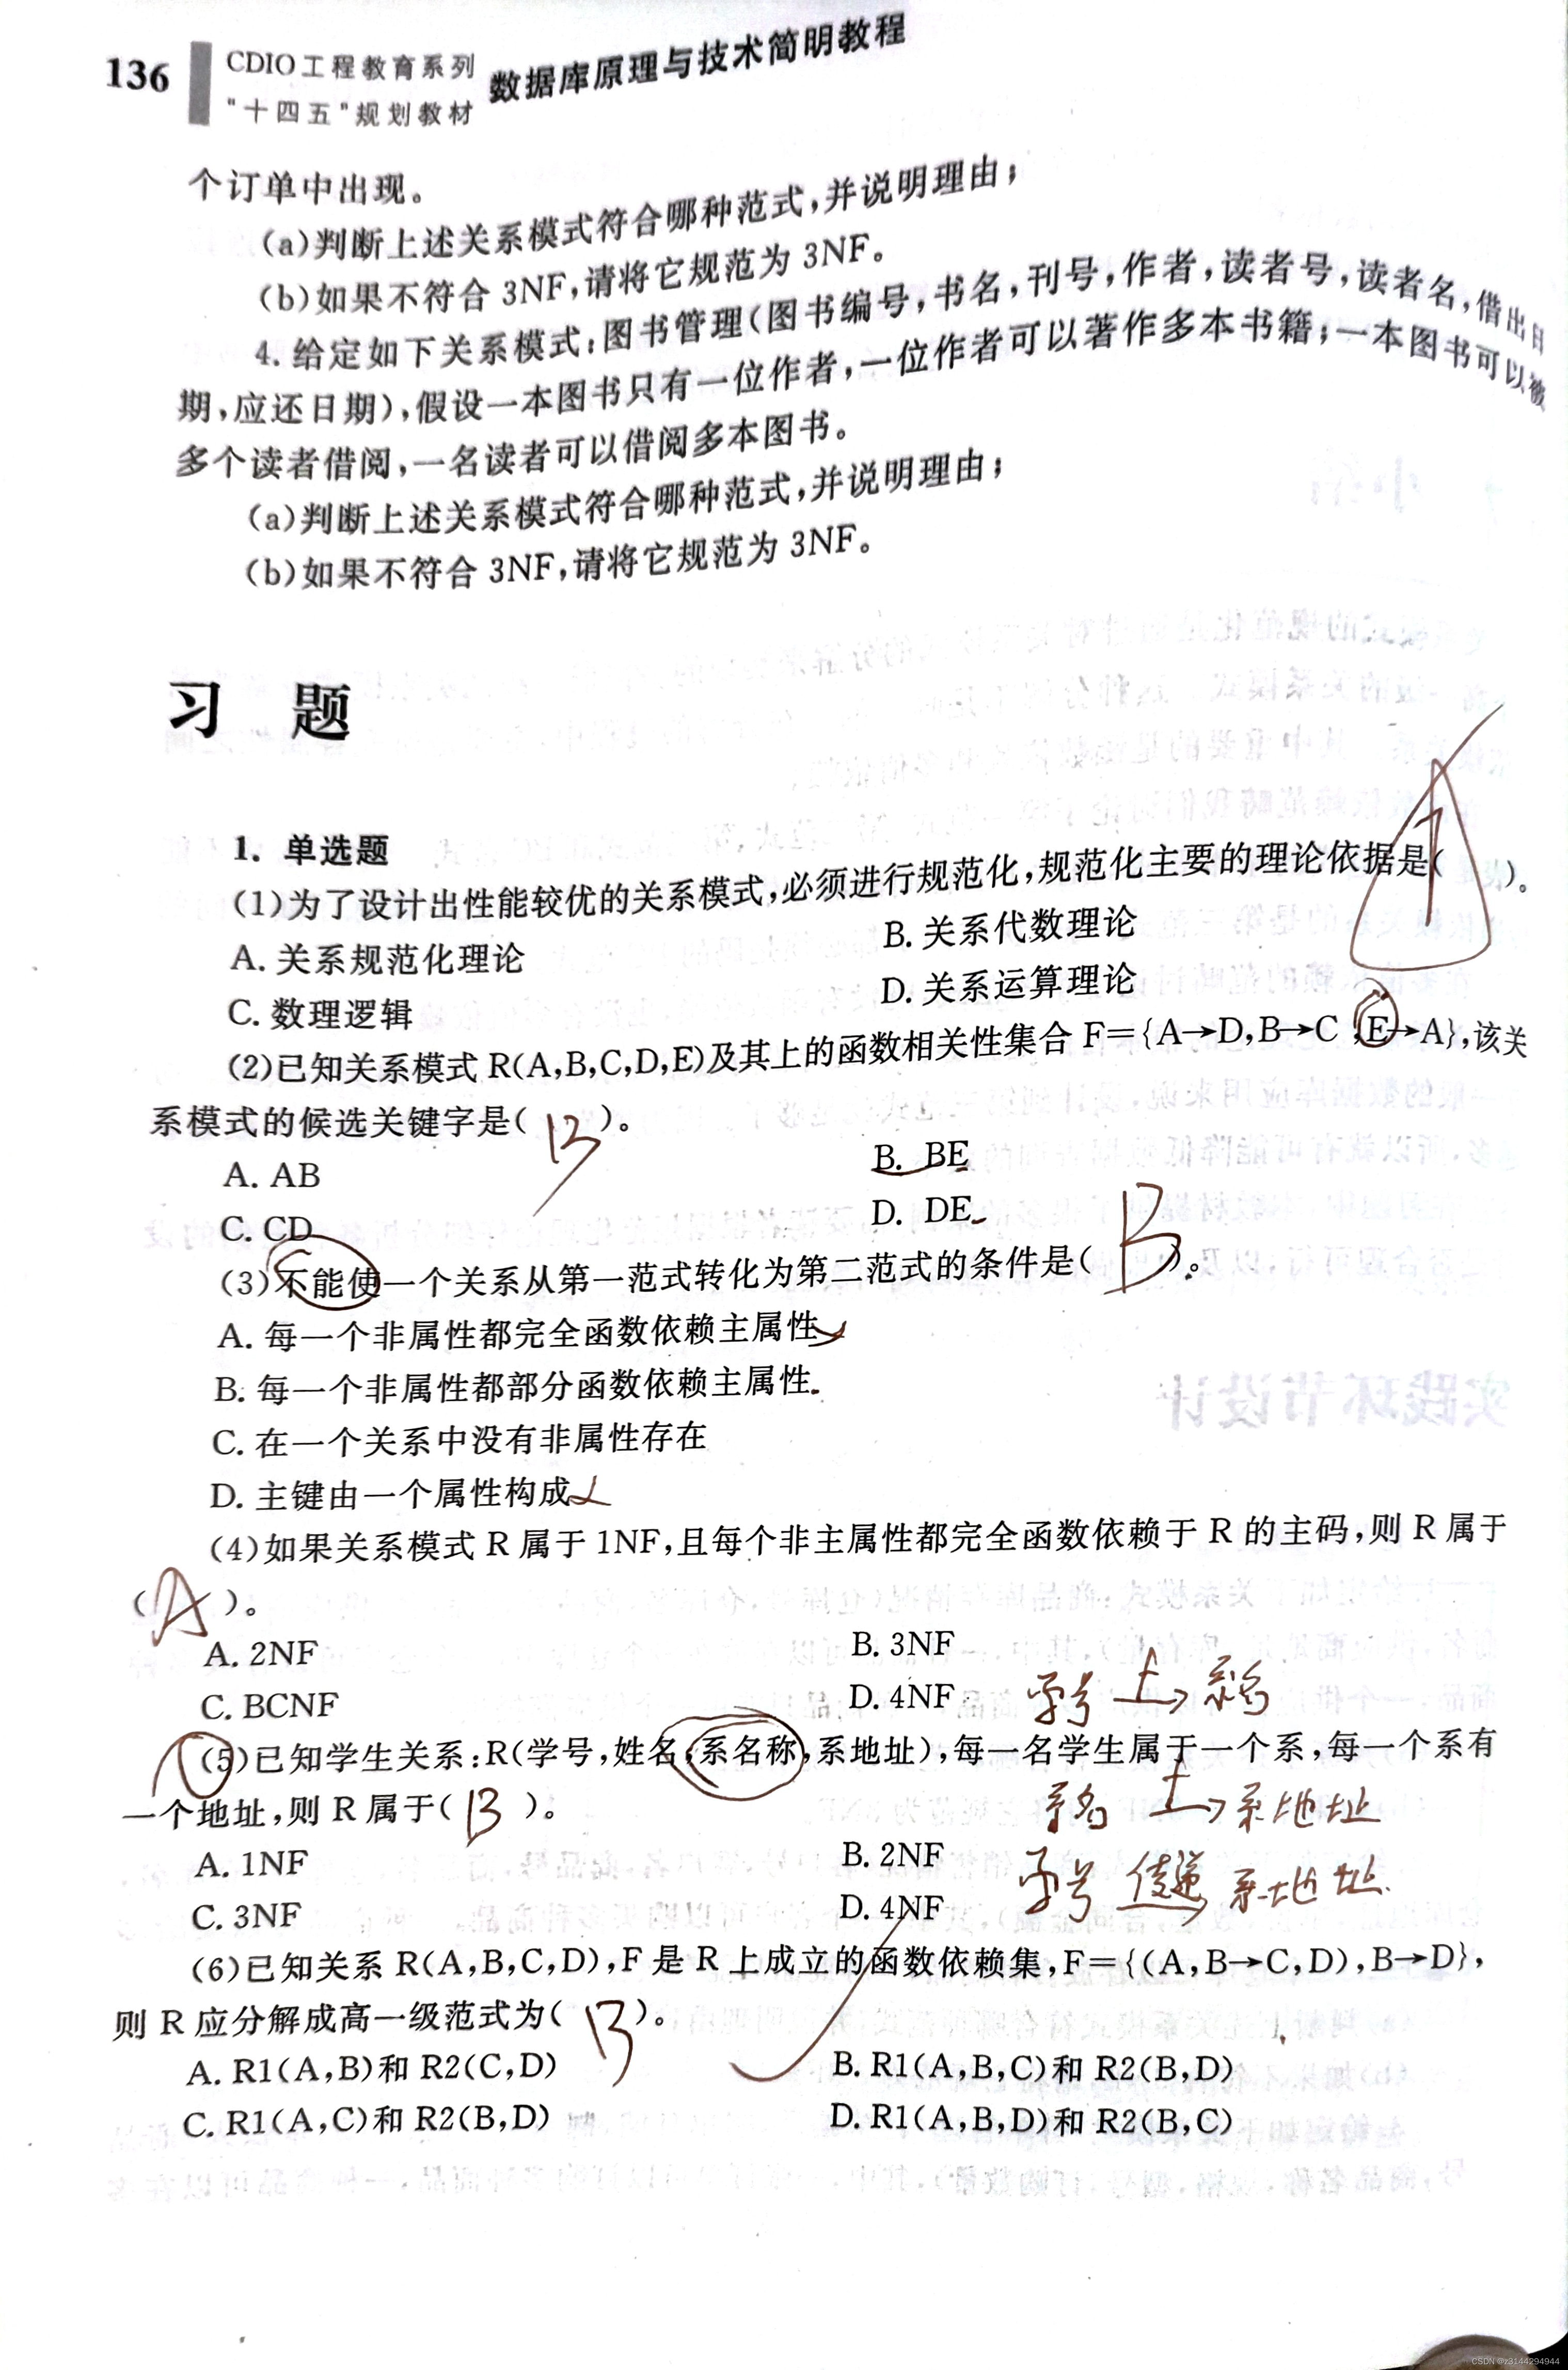 136
CDIO工程教育系列
“十四五”规划教材
数据库原理与技术简明教程
个订单中出现。
(a)判断上述关系模式符合哪种范式,并说明理由;
(b)如果不符合 3NF,请将它规范为 3NF。
4. 给定如下关系模式:图书管理(图书编号,书名,刊号,作者,读者号,读者名,借出日
期,应还日期),假设一本图书只有一位作者,一位作者可以著作多本书籍;一本图书可以被
多个读者借阅,一名读者可以借阅多本图书。
(a)判断上述关系模式符合哪种范式,并说明理由;
(b)如果不符合 3NF,请将它规范为 3NF。
习 题
1. 单选题
(1)为了设计出性能较优的关系模式,必须进行规范化,规范化主要的理论依据是( A )。
A. 关系规范化理论 B. 关系代数理论
C. 数理逻辑 D. 关系运算理论
(2)已知关系模式 R(A,B,C,D,E)及其上的函数相关性集合 F={A→D,B→C,E→A},该关
系模式的候选关键字是( B )。
A. AB B. BE
C. CD D. DE
(3)不能使一个关系从第一范式转化为第二范式的条件是( B )。
A. 每一个非属性都完全函数依赖主属性
B. 每一个非属性都部分函数依赖主属性
C. 在一个关系中没有非属性存在
D. 主键由一个属性构成
(4)如果关系模式 R 属于 1NF,且每个非主属性都完全函数依赖于 R 的主码,则 R 属于
( A )。
A. 2NF B. 3NF
C. BCNF D. 4NF
学号 → 系名
(5)已知学生关系:R(学号,姓名,系名称,系地址),每一名学生属于一个系,每一个系有
一个地址,则 R 属于( B )。
系名 → 系地址
A. 1NF B. 2NF
学号 传递 系地址
C. 3NF D. 4NF
(6)已知关系 R(A,B,C,D),F 是 R 上成立的函数依赖集,F={(A,B→C,D),B→D},
则 R 应分解成高一级范式为( B )。
A. R1(A,B)和 R2(C,D) B. R1(A,B,C)和 R2(B,D)
C. R1(A,C)和 R2(B,D) D. R1(A,B,D)和 R2(B,C)
CSDN @z3144294944